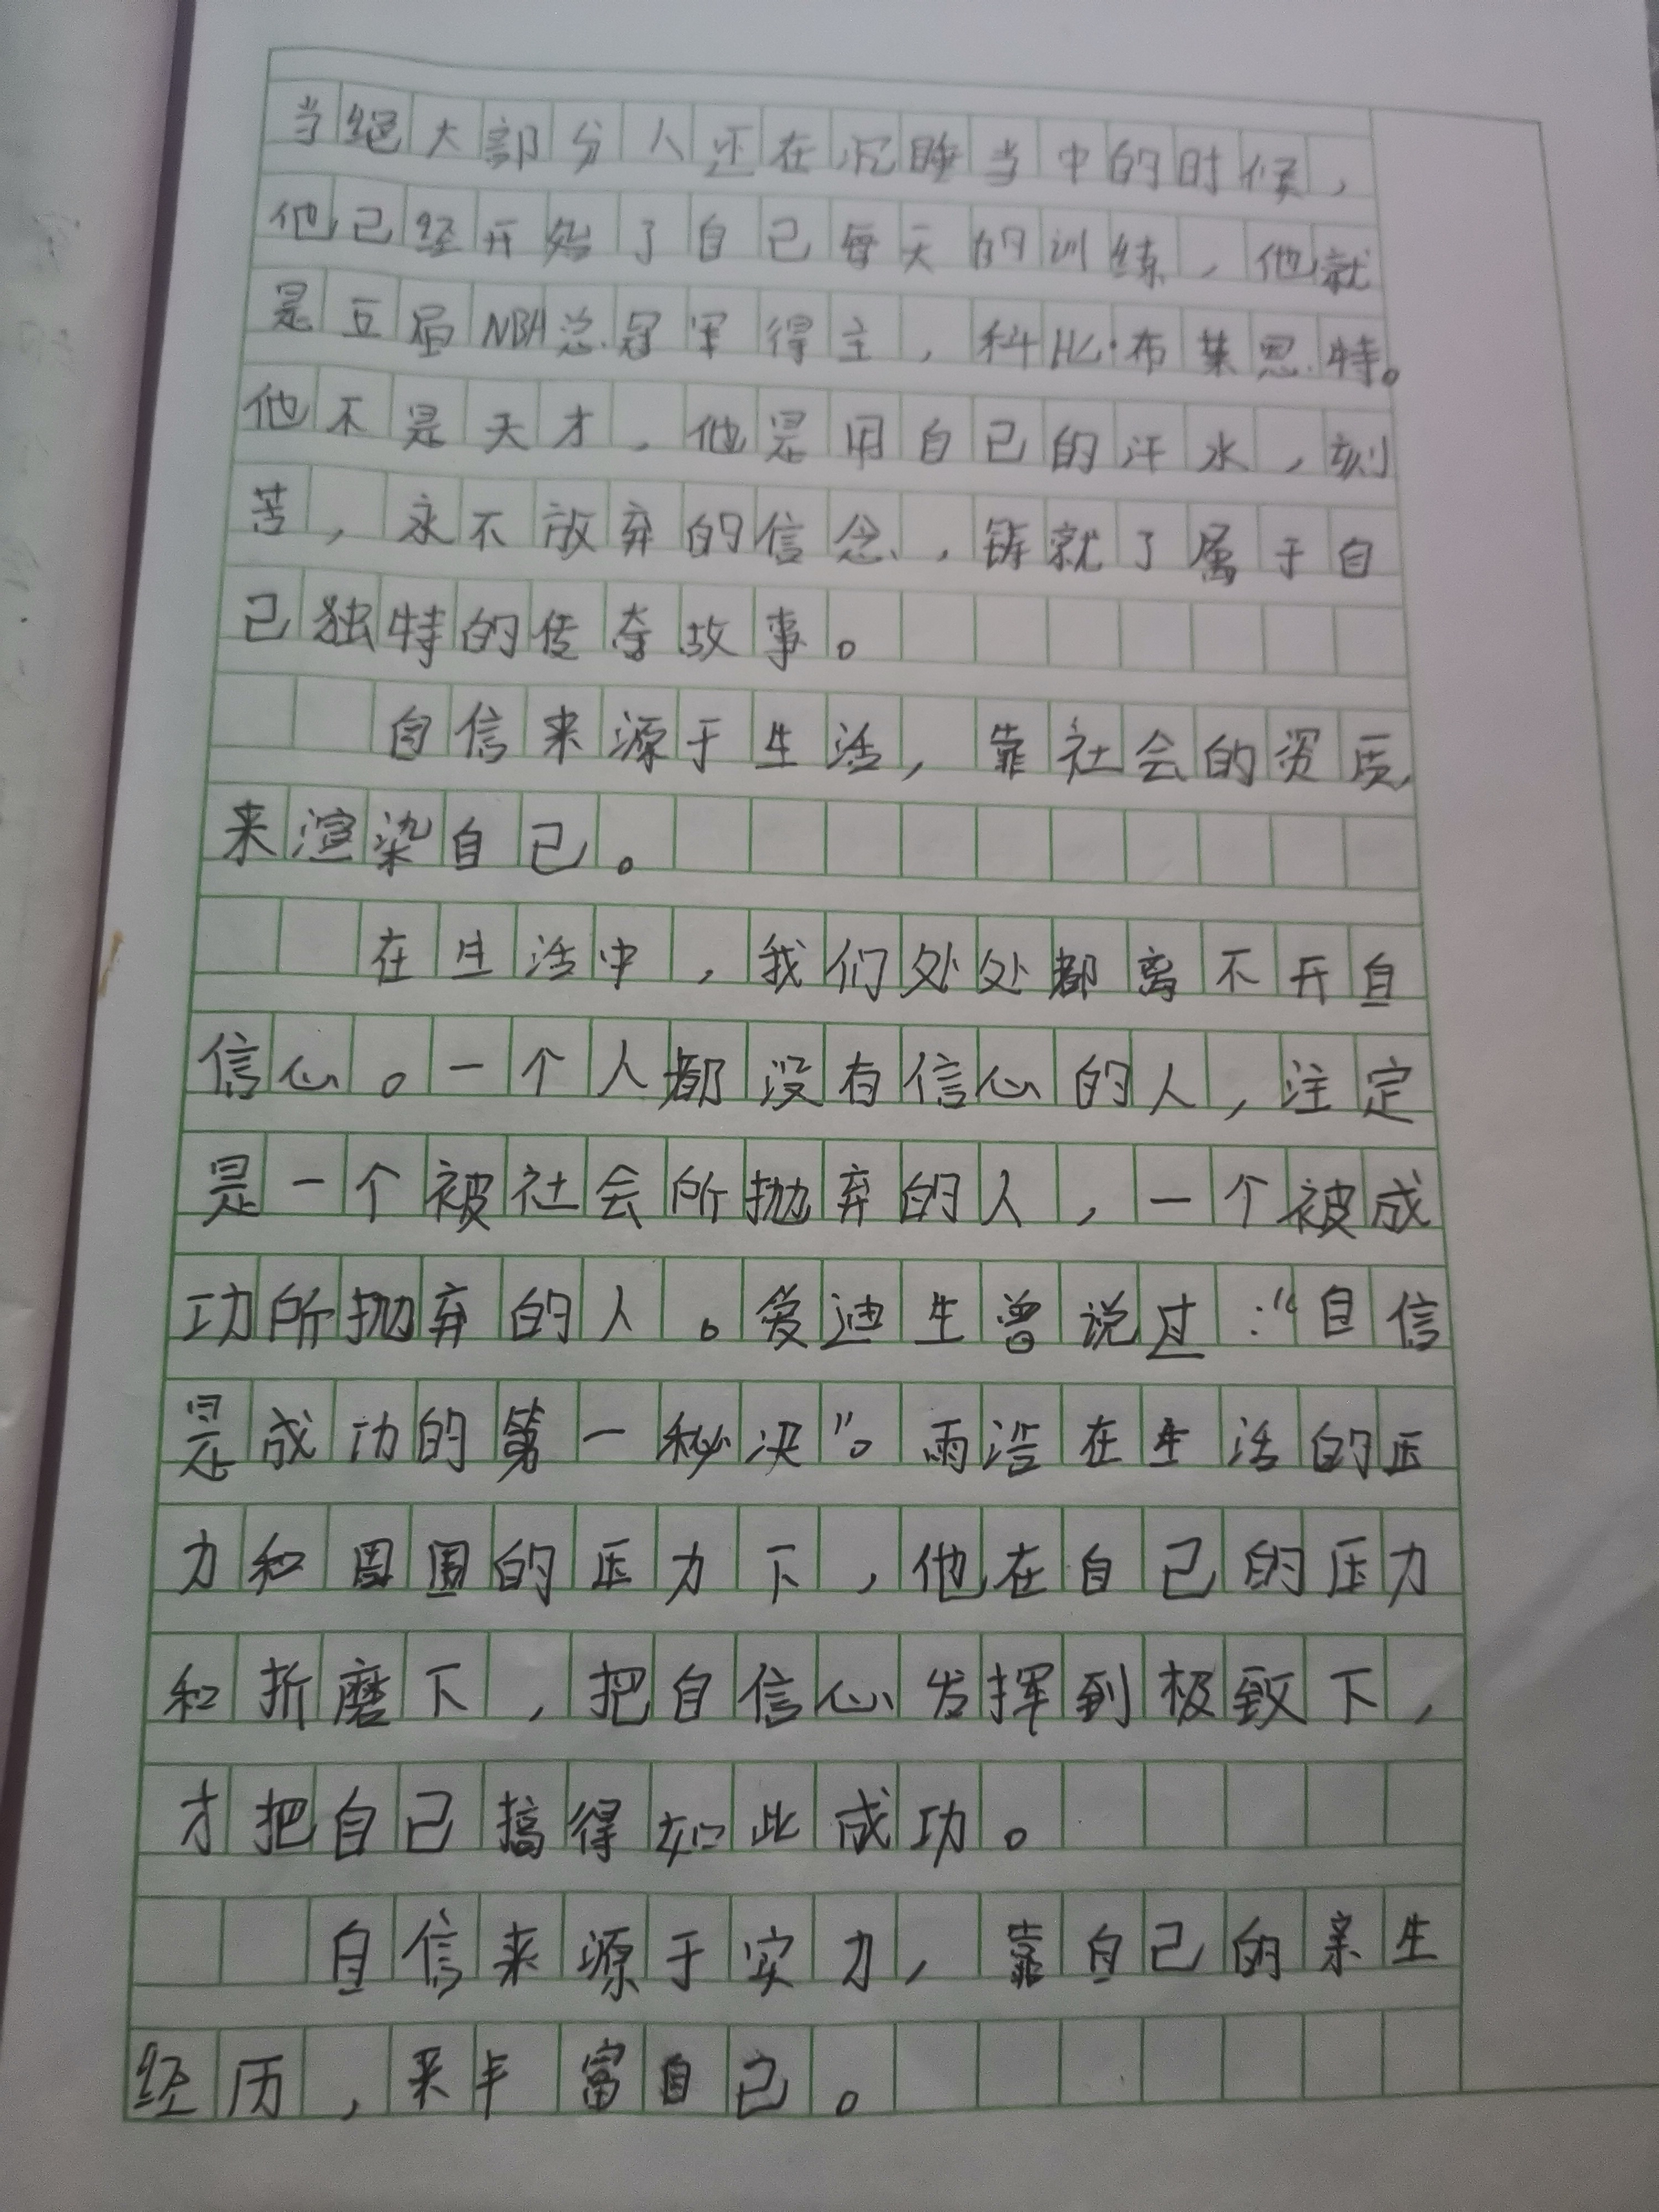 当绝大部分人还在沉睡当中的时候，
他已经开始了自己每天的训练，他就
是五届NBA总冠军得主，科比·布莱恩特。
他不是天才，他是用自己的汗水，刻
苦，永不放弃的信念，铸就了属于自
己独特的传奇故事。
自信来源于生活，靠社会的资质
来渲染自己。
在生活中，我们处处都离不开自
信心。一个人都没有信心的人，注定
是一个被社会所抛弃的人，一个被成
功所抛弃的人。爱迪生曾说过：“自信
是成功的第一秘决”。雨浩在生活的压
力和周围的压力下，他在自己的压力
和折磨下，把自信心发挥到极致下，
才把自己搞得如此成功。
自信来源于实力，靠自己的亲生
经历，来丰富自己。